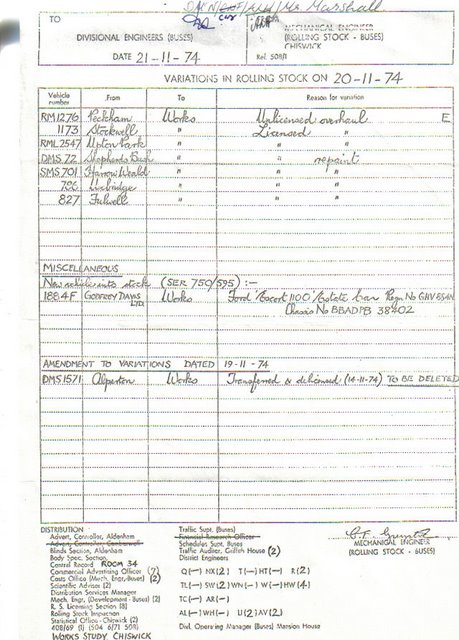 Mr Marshall
TO
DIVISIONAL ENGINEERS (BUSES)
MECHANICAL ENGINEER
(ROLLING STOCK - BUSES)
CHISWICK
DATE 21-11-74
Ref. 508/1
VARIATIONS IN ROLLING STOCK ON 20-11-74
Vehicle number From To Reason for variation
RM1276 Peckham Works Unlicensed overhaul E
1173 Stockwell " Licensed "
RML2547 Upton Park " " "
DMS 72 Shepherds Bush " " repaint
SMS 701 Harrow Weald " " "
706 Uxbridge " " "
827 Fulwell " " "
MISCELLANEOUS
New vehicle into stock (SER 750/595) :-
1884F GODFREY DAVIS LTD. Works Ford 'Escort 1100' Estate Car Regn No
Chassis No BBADPB 38402
AMENDMENT TO VARIATIONS DATED 19-11-74
DMS1571 Alperton Works Transferred & delicensed (14-11-74) TO BE DELETED
DISTRIBUTION
Advert. Controller, Aldenham
Advert. Controller, Camberwell
Blinds Section, Aldenham
Body Spec. Section,
Central Record ROOM 34
Commercial Advertising Officer (7)
Costs Office (Mech. Engr. Buses) (2)
Scientific Adviser (2)
Distribution Services Manager
Mech. Engr. (Development - Buses) (2)
R. S. Licensing Section (8)
Rolling Stock Inspection
Statistical Office - Chiswick (2)
408/69 (1) 504 6/71 509)
WORKS STUDY CHISWICK
Traffic Supt. (Buses)
Financial Research Officer
Schedules Supt. Buses
Traffic Auditor, Griffith House (2)
District Engineers
Q (—) NX (2) T (—) H (—) R (2)
TL (—) SW (2) WN (—) W (—) HW (4)
TC (—) AR (—)
AL (—) WH (—) U (2) AV (2)
Divl. Operating Manager (Buses) Mansion House
MECHANICAL ENGINEER
(ROLLING STOCK - BUSES)